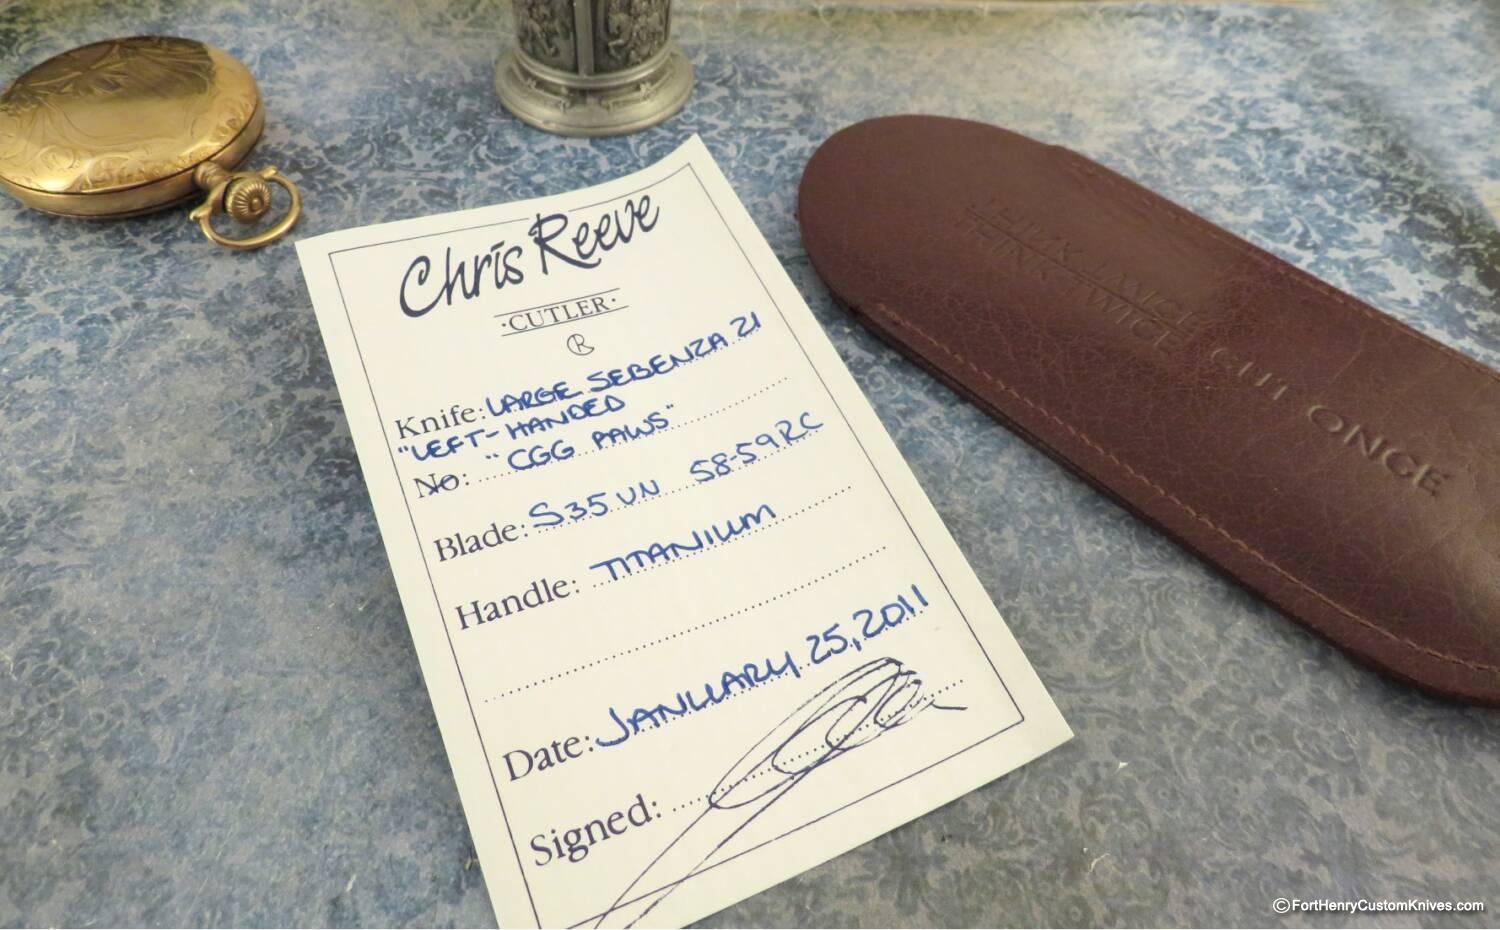 Chris Reeve
·CUTLER·
Knife: LARGE SEBENZA 21
"LEFT-HANDED
No: "CGG PAWS"
Blade: S35VN 58-59RC
Handle: TITANIUM
Date: JANUARY 25, 2011
Signed:
THINK TWICE
CUT ONCE
©FortHenryCustomKnives.com